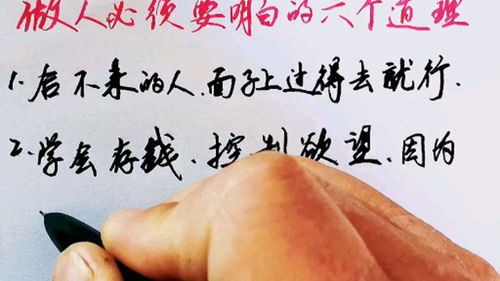 做人必须要明白的六个道理
1.合不来的人.面子上过得去就行.
2.学会存钱、控制欲望、因为